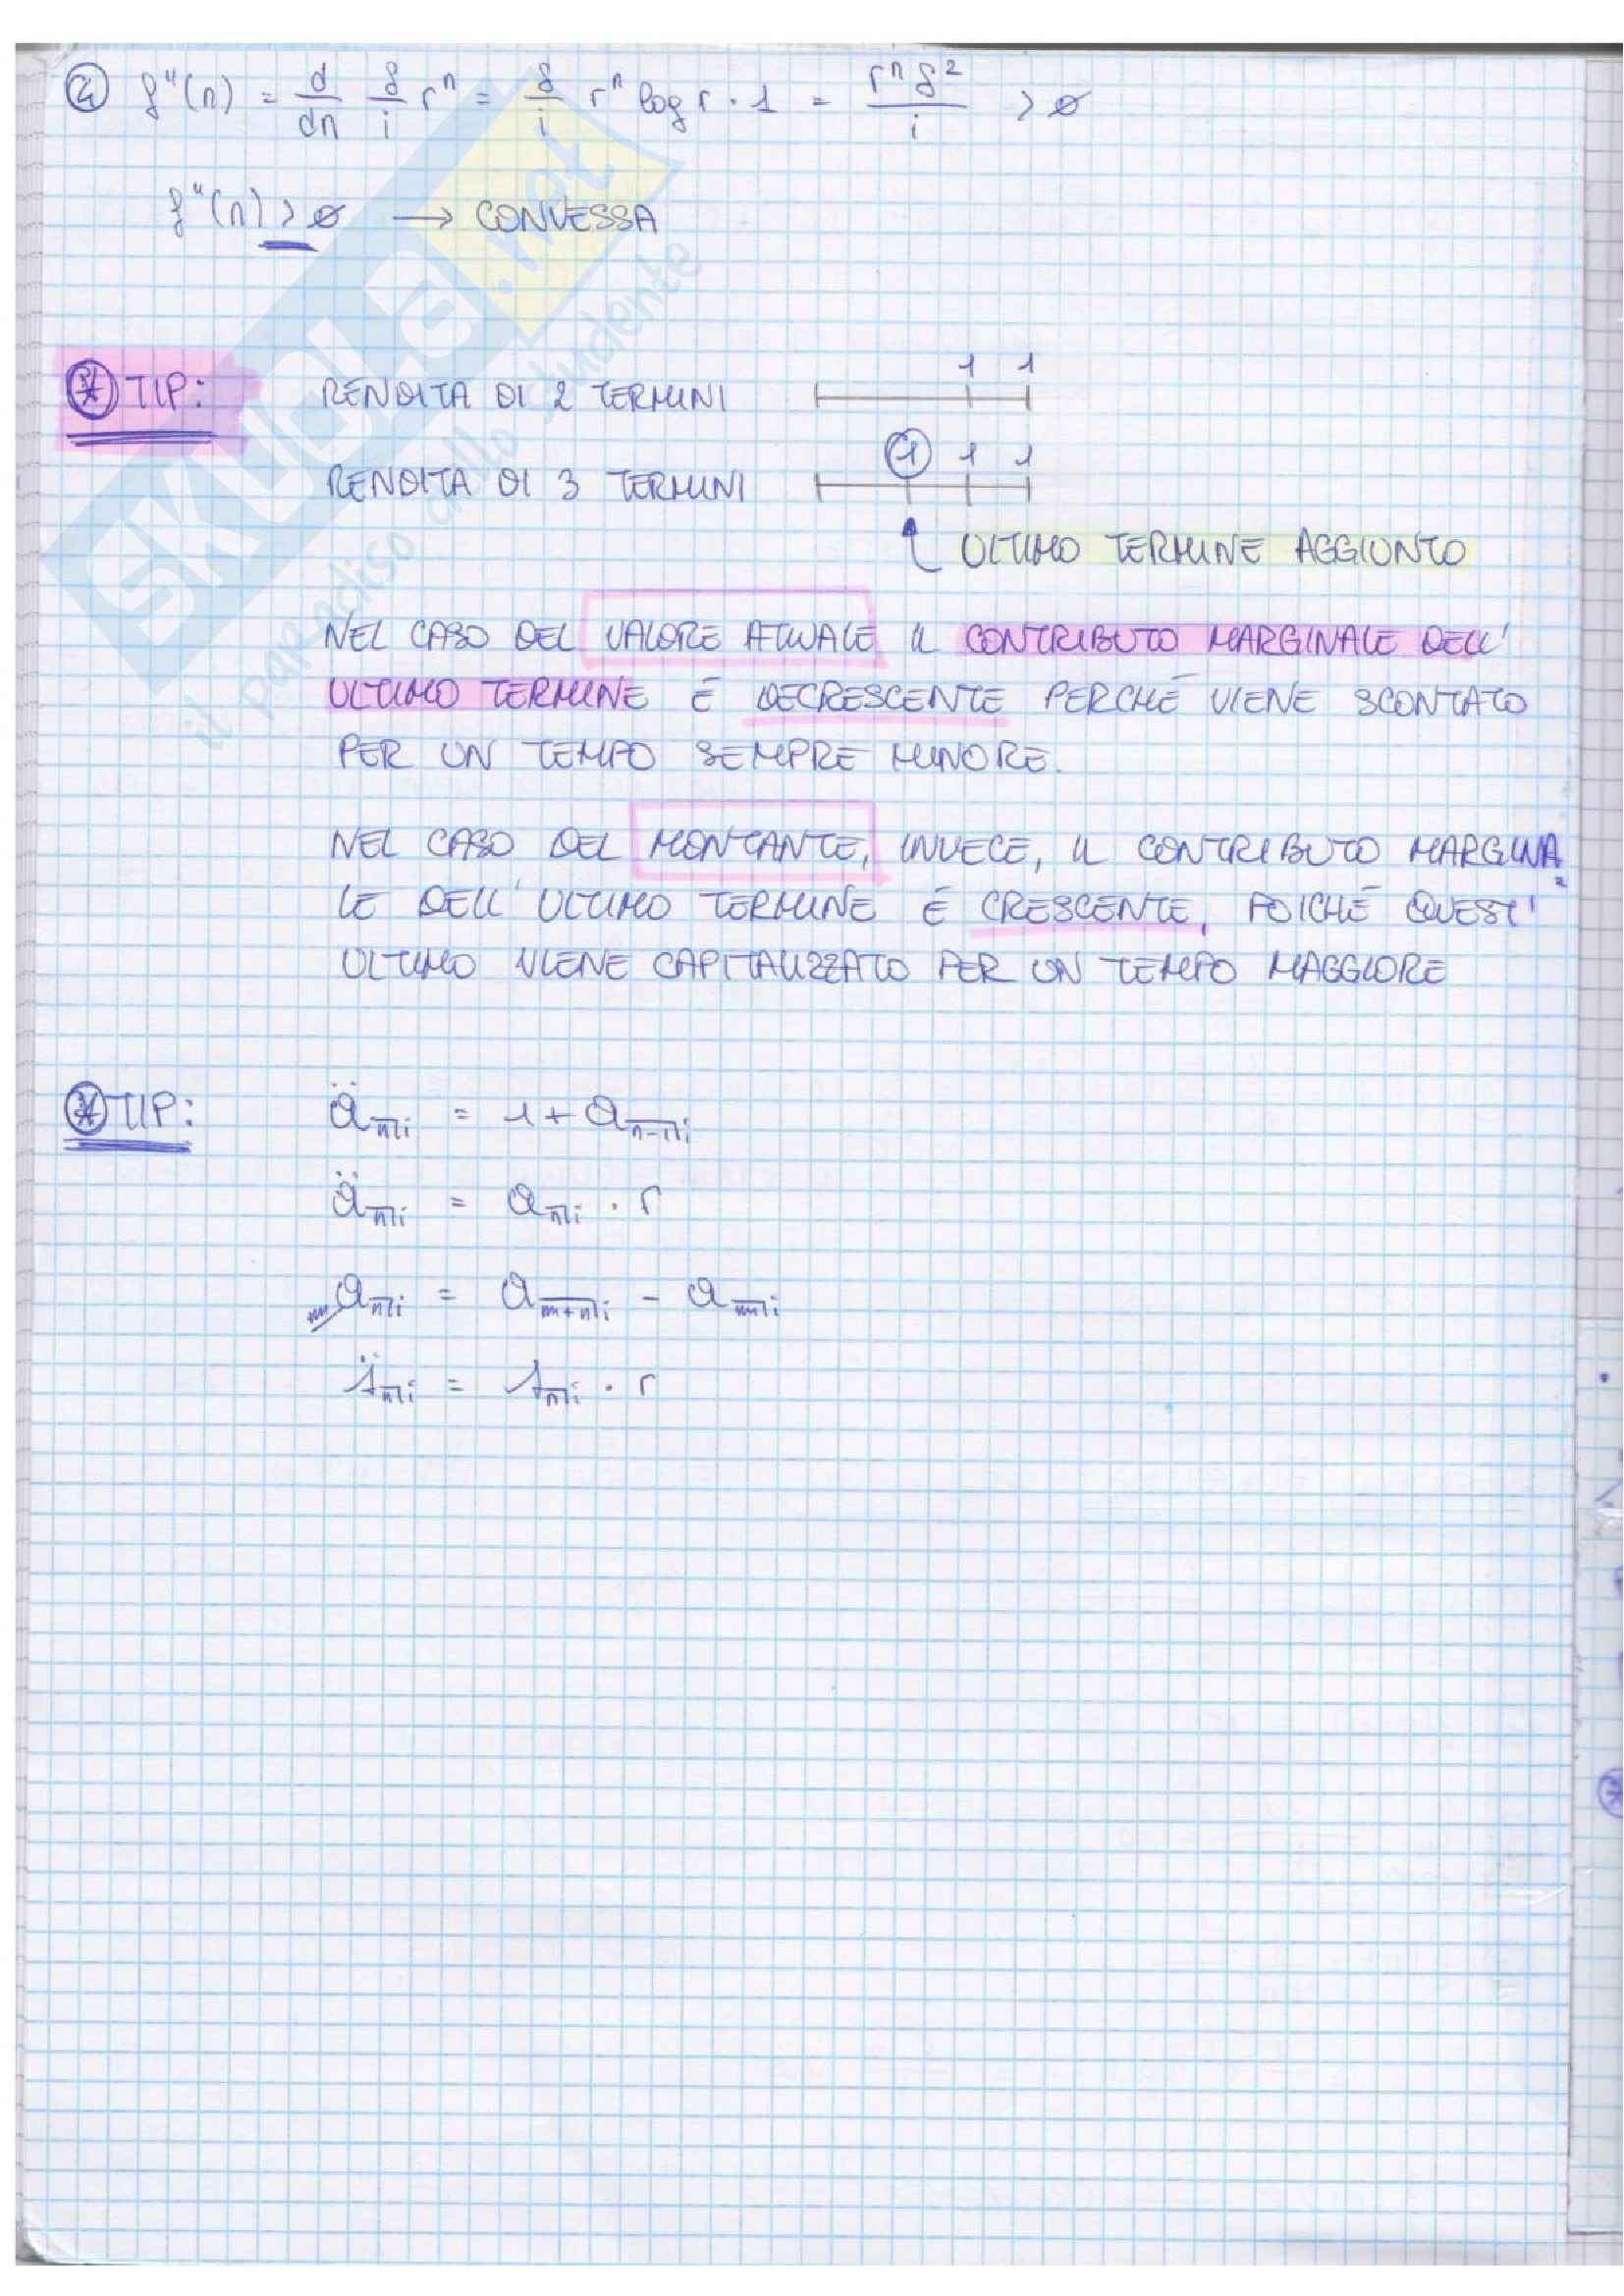 ② f"(n) = d/dn δ/i rⁿ = δ/i rⁿ log r · 1 = rⁿ δ²/i > ø
f"(n) > ø → CONVESSA
SKUOLA.net
il paradiso dello studente
* TIP: RENDITA DI 2 TERMINI 1 1
RENDITA DI 3 TERMINI 1 1 1
ULTIMO TERMINE AGGIUNTO
NEL CASO DEL VALORE ATTUALE IL CONTRIBUTO MARGINALE DELL'
ULTIMO TERMINE È DECRESCENTE PERCHÈ VIENE SCONTATO
PER UN TEMPO SEMPRE MINORE.
NEL CASO DEL MONTANTE, INVECE, IL CONTRIBUTO MARGINA
LE DELL'ULTIMO TERMINE È CRESCENTE, POICHÈ QUEST'
ULTIMO VIENE CAPITALIZZATO PER UN TEMPO MAGGIORE
* TIP: ä n̅|i = 1 + a n-1̅|i
ä n̅|i = a n̅|i · r
m/ a n̅|i = a m+n̅|i - a m̅|i
s̈ n̅|i = s n̅|i · r